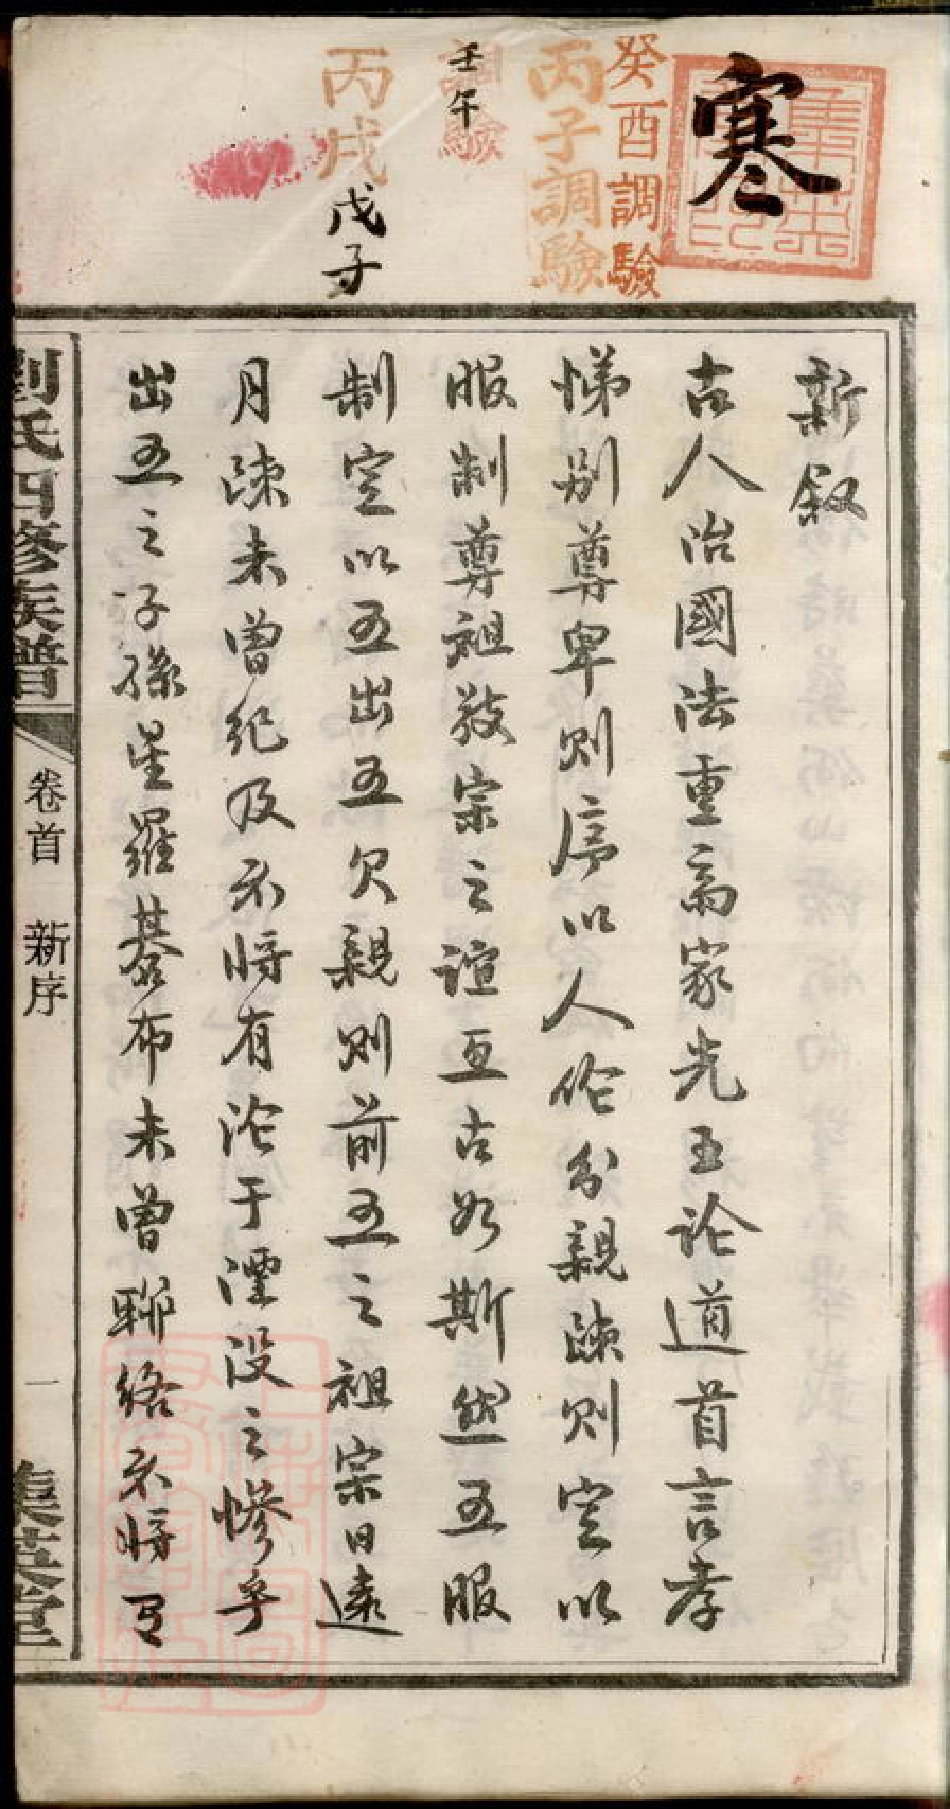 寒
癸酉調驗
丙子調驗
調驗
壬午
丙戌
戊子
新叙
古人治國法重齊家先王论道首言孝
悌别尊卑则序以人伦分親疎则定以
服制尊祖敬宗之谊亙古如斯然五服
制定以五出五欠親则前五之祖宗日遠
月疎未曾纪及不将有沦于湮没之慘乎
出五之子孫星羅碁布未曾聯络不将有
劉氏四修族譜
卷首 新序
一
集英堂